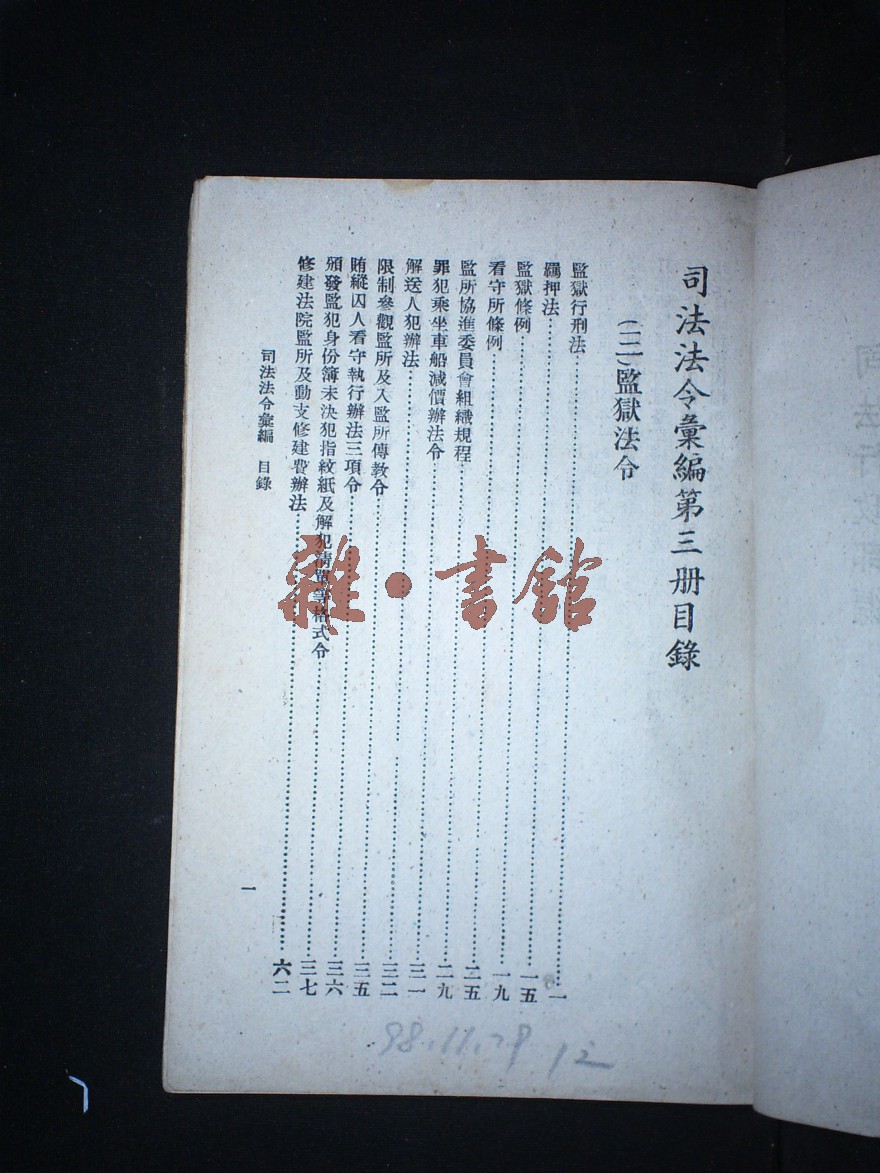 司法法令彙編第三册目錄
(三)監獄法令
監獄行刑法……一
羈押法……一五
監獄條例……一九
看守所條例……二五
監所協進委員會組織規程……二九
罪犯乘坐車船減價辦法令……三一
解送人犯辦法……三二
限制參觀監所及入監所傳教令……三五
賄縱囚人看守執行辦法三項令……三六
頒發監犯身份簿未決犯指紋紙及解犯清單等格式令……三七
修建法院監所及動支修建費辦法……六二
司法法令彙編 目錄
一
雜·書館
98.11.29 12